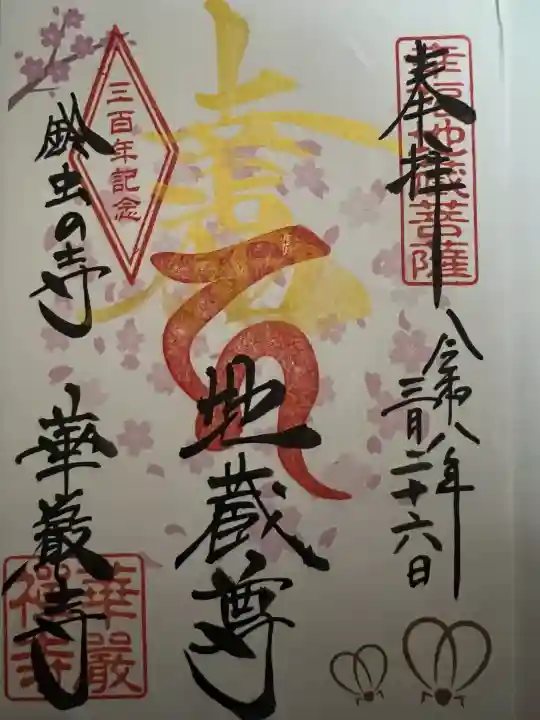 奉拝
令和八年
三月二十六日
幸福地蔵菩薩
地蔵尊
三百年記念
鈴虫の寺
華厳寺
華嚴
禅寺